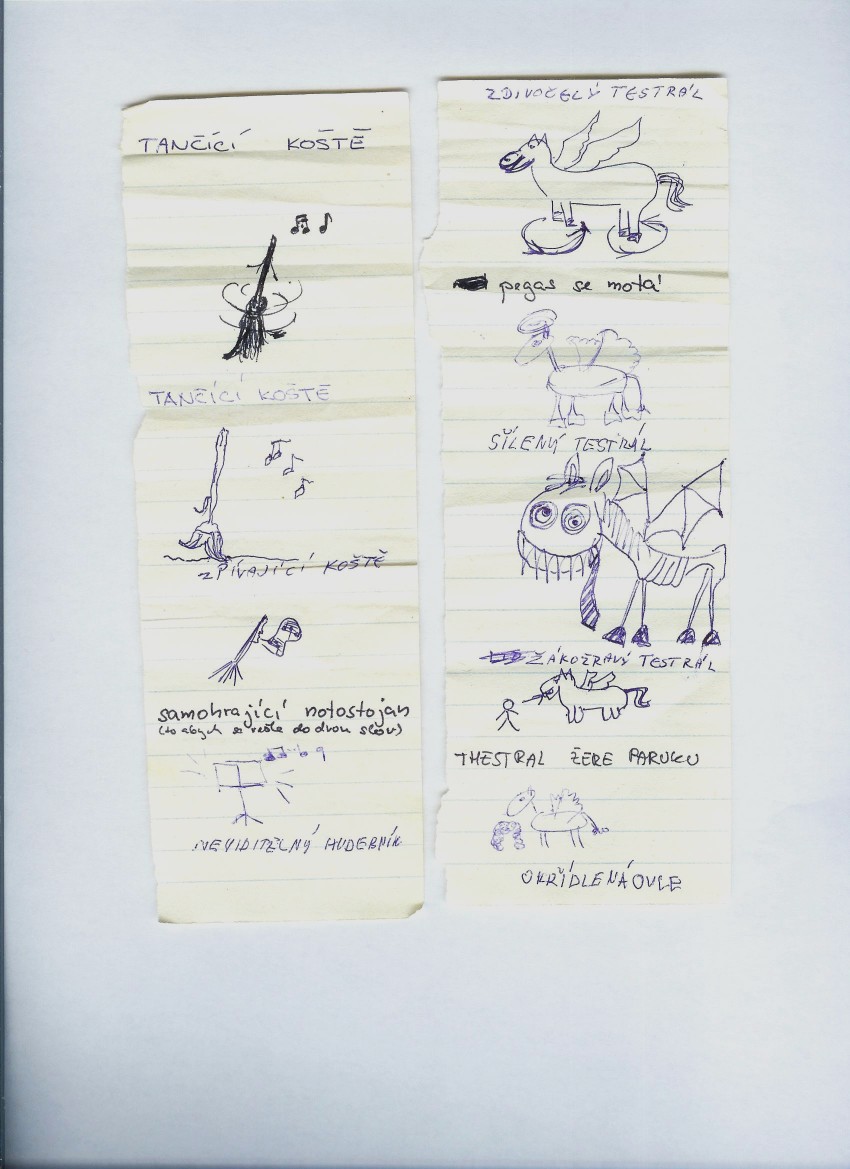 TANČÍCÍ KOŠTĚ
TANČÍCÍ KOŠTĚ
ZPÍVAJÍCÍ KOŠTĚ
samohrající notostojan
(to abych se vešla do dvou slov)
NEVIDITELNÝ HUDEBNÍK
ZDIVOČELÝ TESTRÁL
pegas se motá
ŠÍLENÝ TESTRÁL
ŽÁKOŽRAVÝ TESTRÁL
THESTRAL ŽERE PARUKU
OKŘÍDLENÁ OVCE